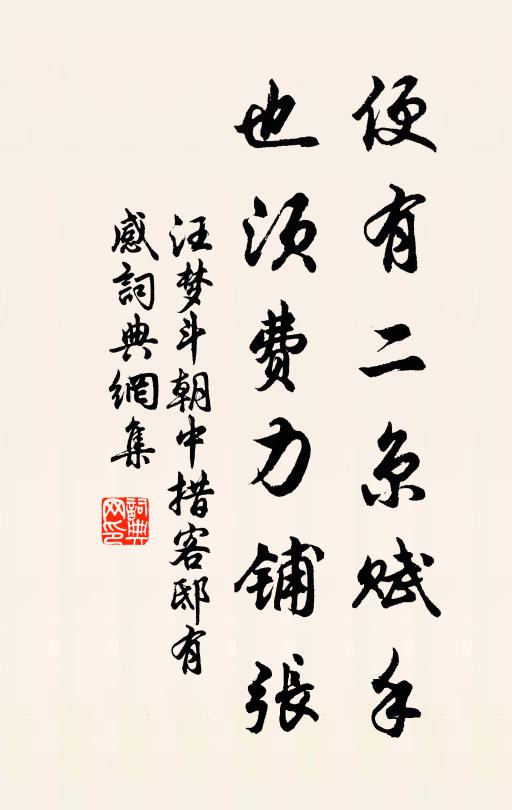 便有二京赋手
也须费力铺張
汪梦斗朝中措客邸有
感詞典網集
詞典网印